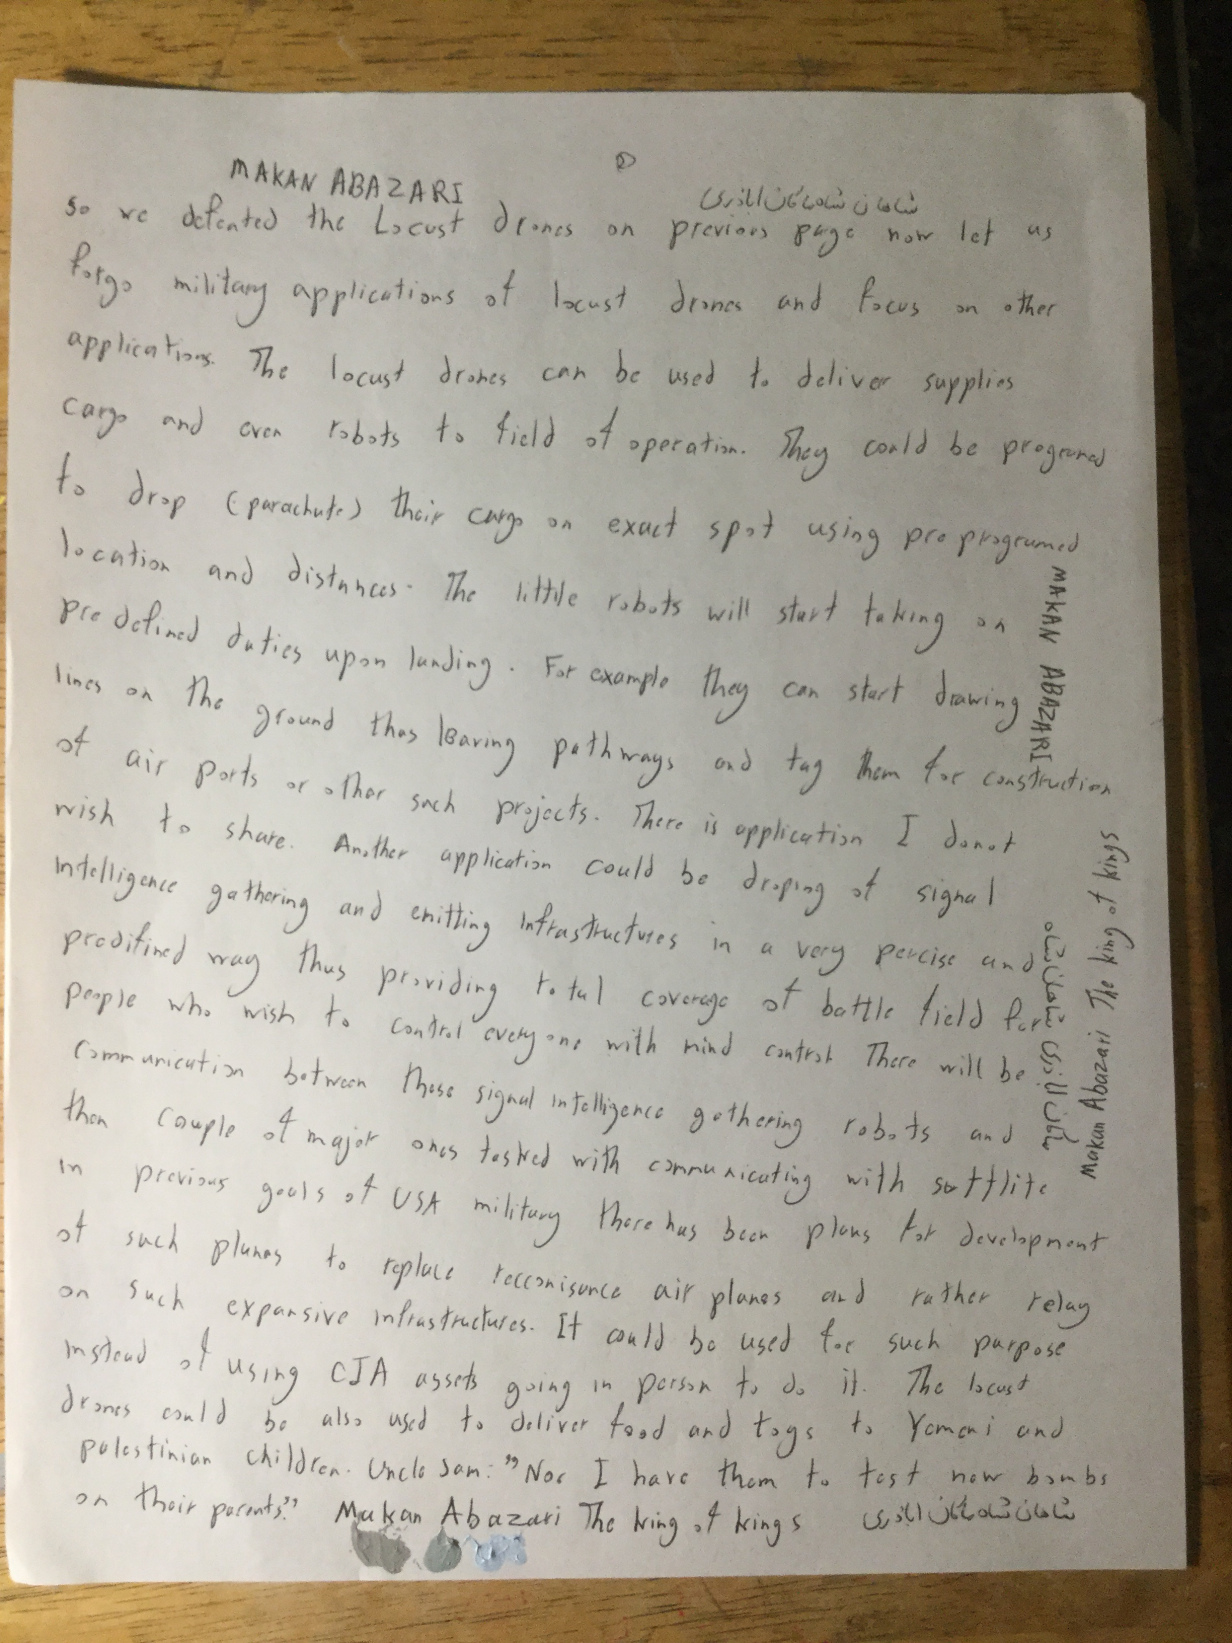 MAKAN ABAZARI
شاهان شاه ماکان اباذری
so we defeated the Locust drones on previous page now let us
forgo military applications of locust drones and focus on other
applications. The locust drones can be used to deliver supplies
cargo and even robots to field of operation. They could be programed
to drop (parachute) their cargo on exact spot using pre programed
location and distances. The little robots will start taking on
pre defined duties upon landing. For example they can start drawing
lines on the ground thus leaving pathways and tag them for construction
of air ports or other such projects. There is application I donot
wish to share. Another application could be droping of signal
Intelligence gathering and emitting Infrastructures in a very percise and
predifined way thus providing total coverage of battle field for
people who wish to control every one with mind control There will be
communication between these signal intelligence gathering robots and
then couple of major ones tasked with communicating with sattlite
in previous goals of USA military there has been plans for development
of such planes to replace recconisance air planes and rather relay
on such expansive infrastructures. It could be used for such purpose
instead of using CIA assets going in person to do it. The locust
drones could be also used to deliver food and toys to Yemeni and
palestinian children. Uncle Sam: "Noo I have them to test new bombs
on their parents" Makan Abazari The king of kings شاهان شاه ماکان اباذری
MAKAN ABAZARI
شاهان شاه ماکان اباذری
Makan Abazari The king of kings